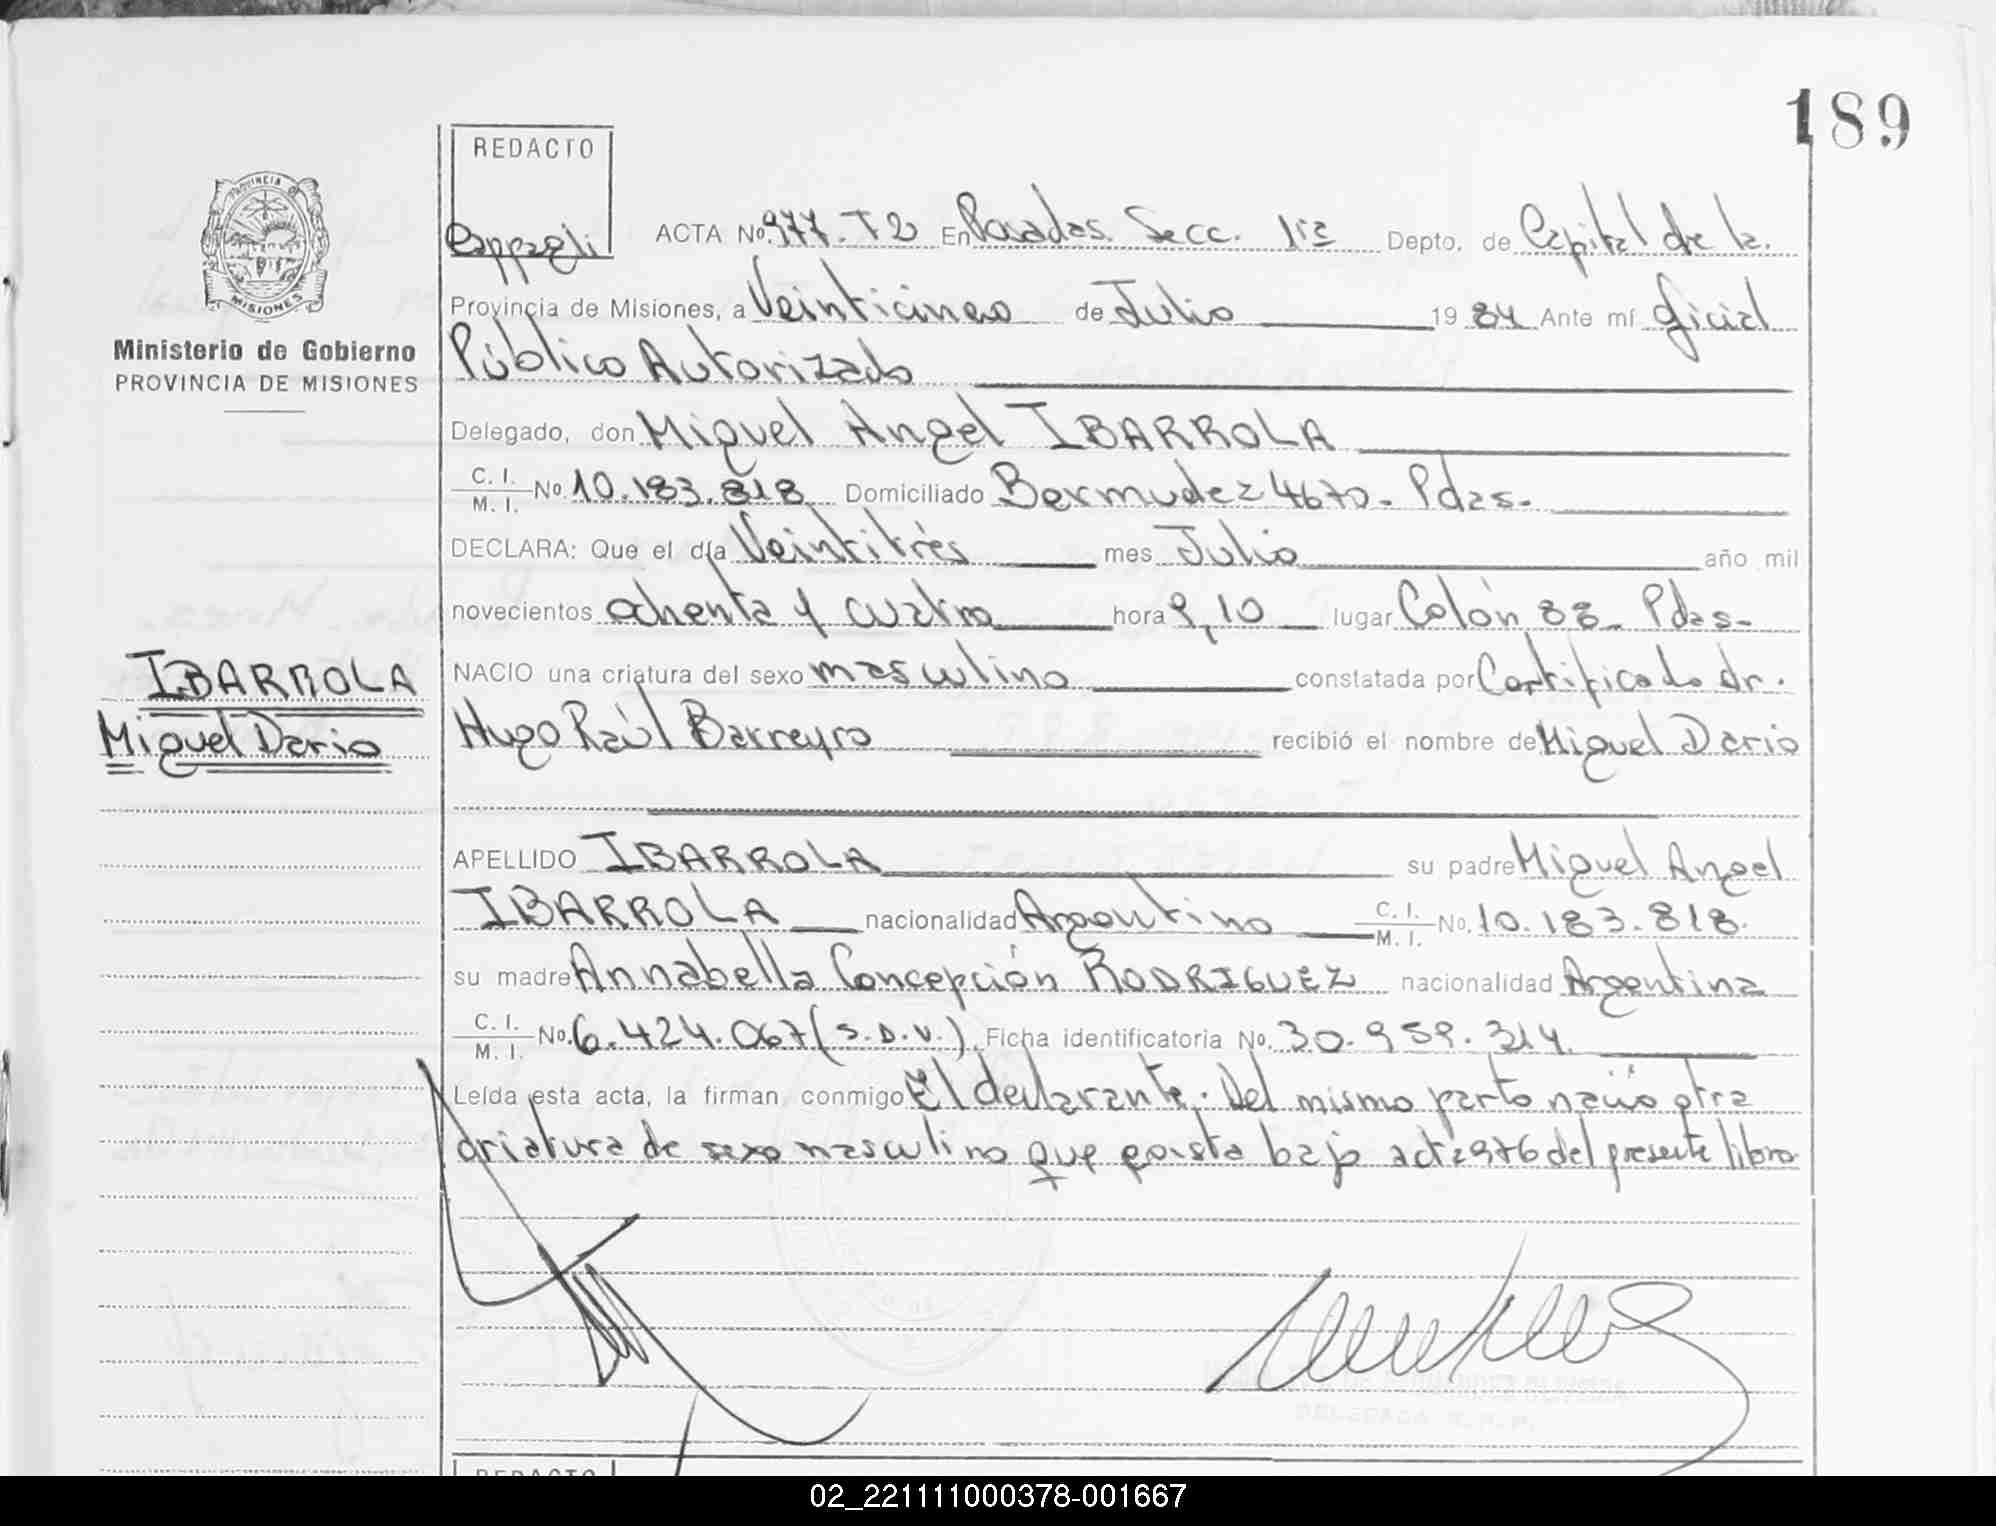 189
REDACTO
Cappagli
ACTA No. 977. T2 En Posadas. Secc. 1ra Depto. de Capital de la.
Provincia de Misiones, a Veinticinco de Julio 1984 Ante mí Oficial
Público Autorizado
Delegado, don Miguel Angel IBARROLA
C. I. / M. I. No. 10.183.818 Domiciliado Bermudez 4670. Pdas.
DECLARA: Que el día Veintitrés mes Julio año mil
novecientos ochenta y cuatro hora 9,10 lugar Colón 88. Pdas.
NACIO una criatura del sexo masculino constatada por Certificado dr.
Hugo Raúl Barreyro recibió el nombre de Miguel Dario
APELLIDO IBARROLA su padre Miguel Angel
IBARROLA nacionalidad Argentino C. I. / M. I. No. 10.183.818.
su madre Annabella Concepción RODRIGUEZ nacionalidad Argentina
C. I. / M. I. No. 6.424.067 (S.D.V.). Ficha identificatoria No. 30.959.314.
Leída esta acta, la firman conmigo El declarante. Del mismo parto nació otra
criatura de sexo masculino que consta bajo acta 976 del presente libro
PROVINCIA
MISIONES
Ministerio de Gobierno
PROVINCIA DE MISIONES
IBARROLA
Miguel Dario
REDACTO
02_221111000378-001667